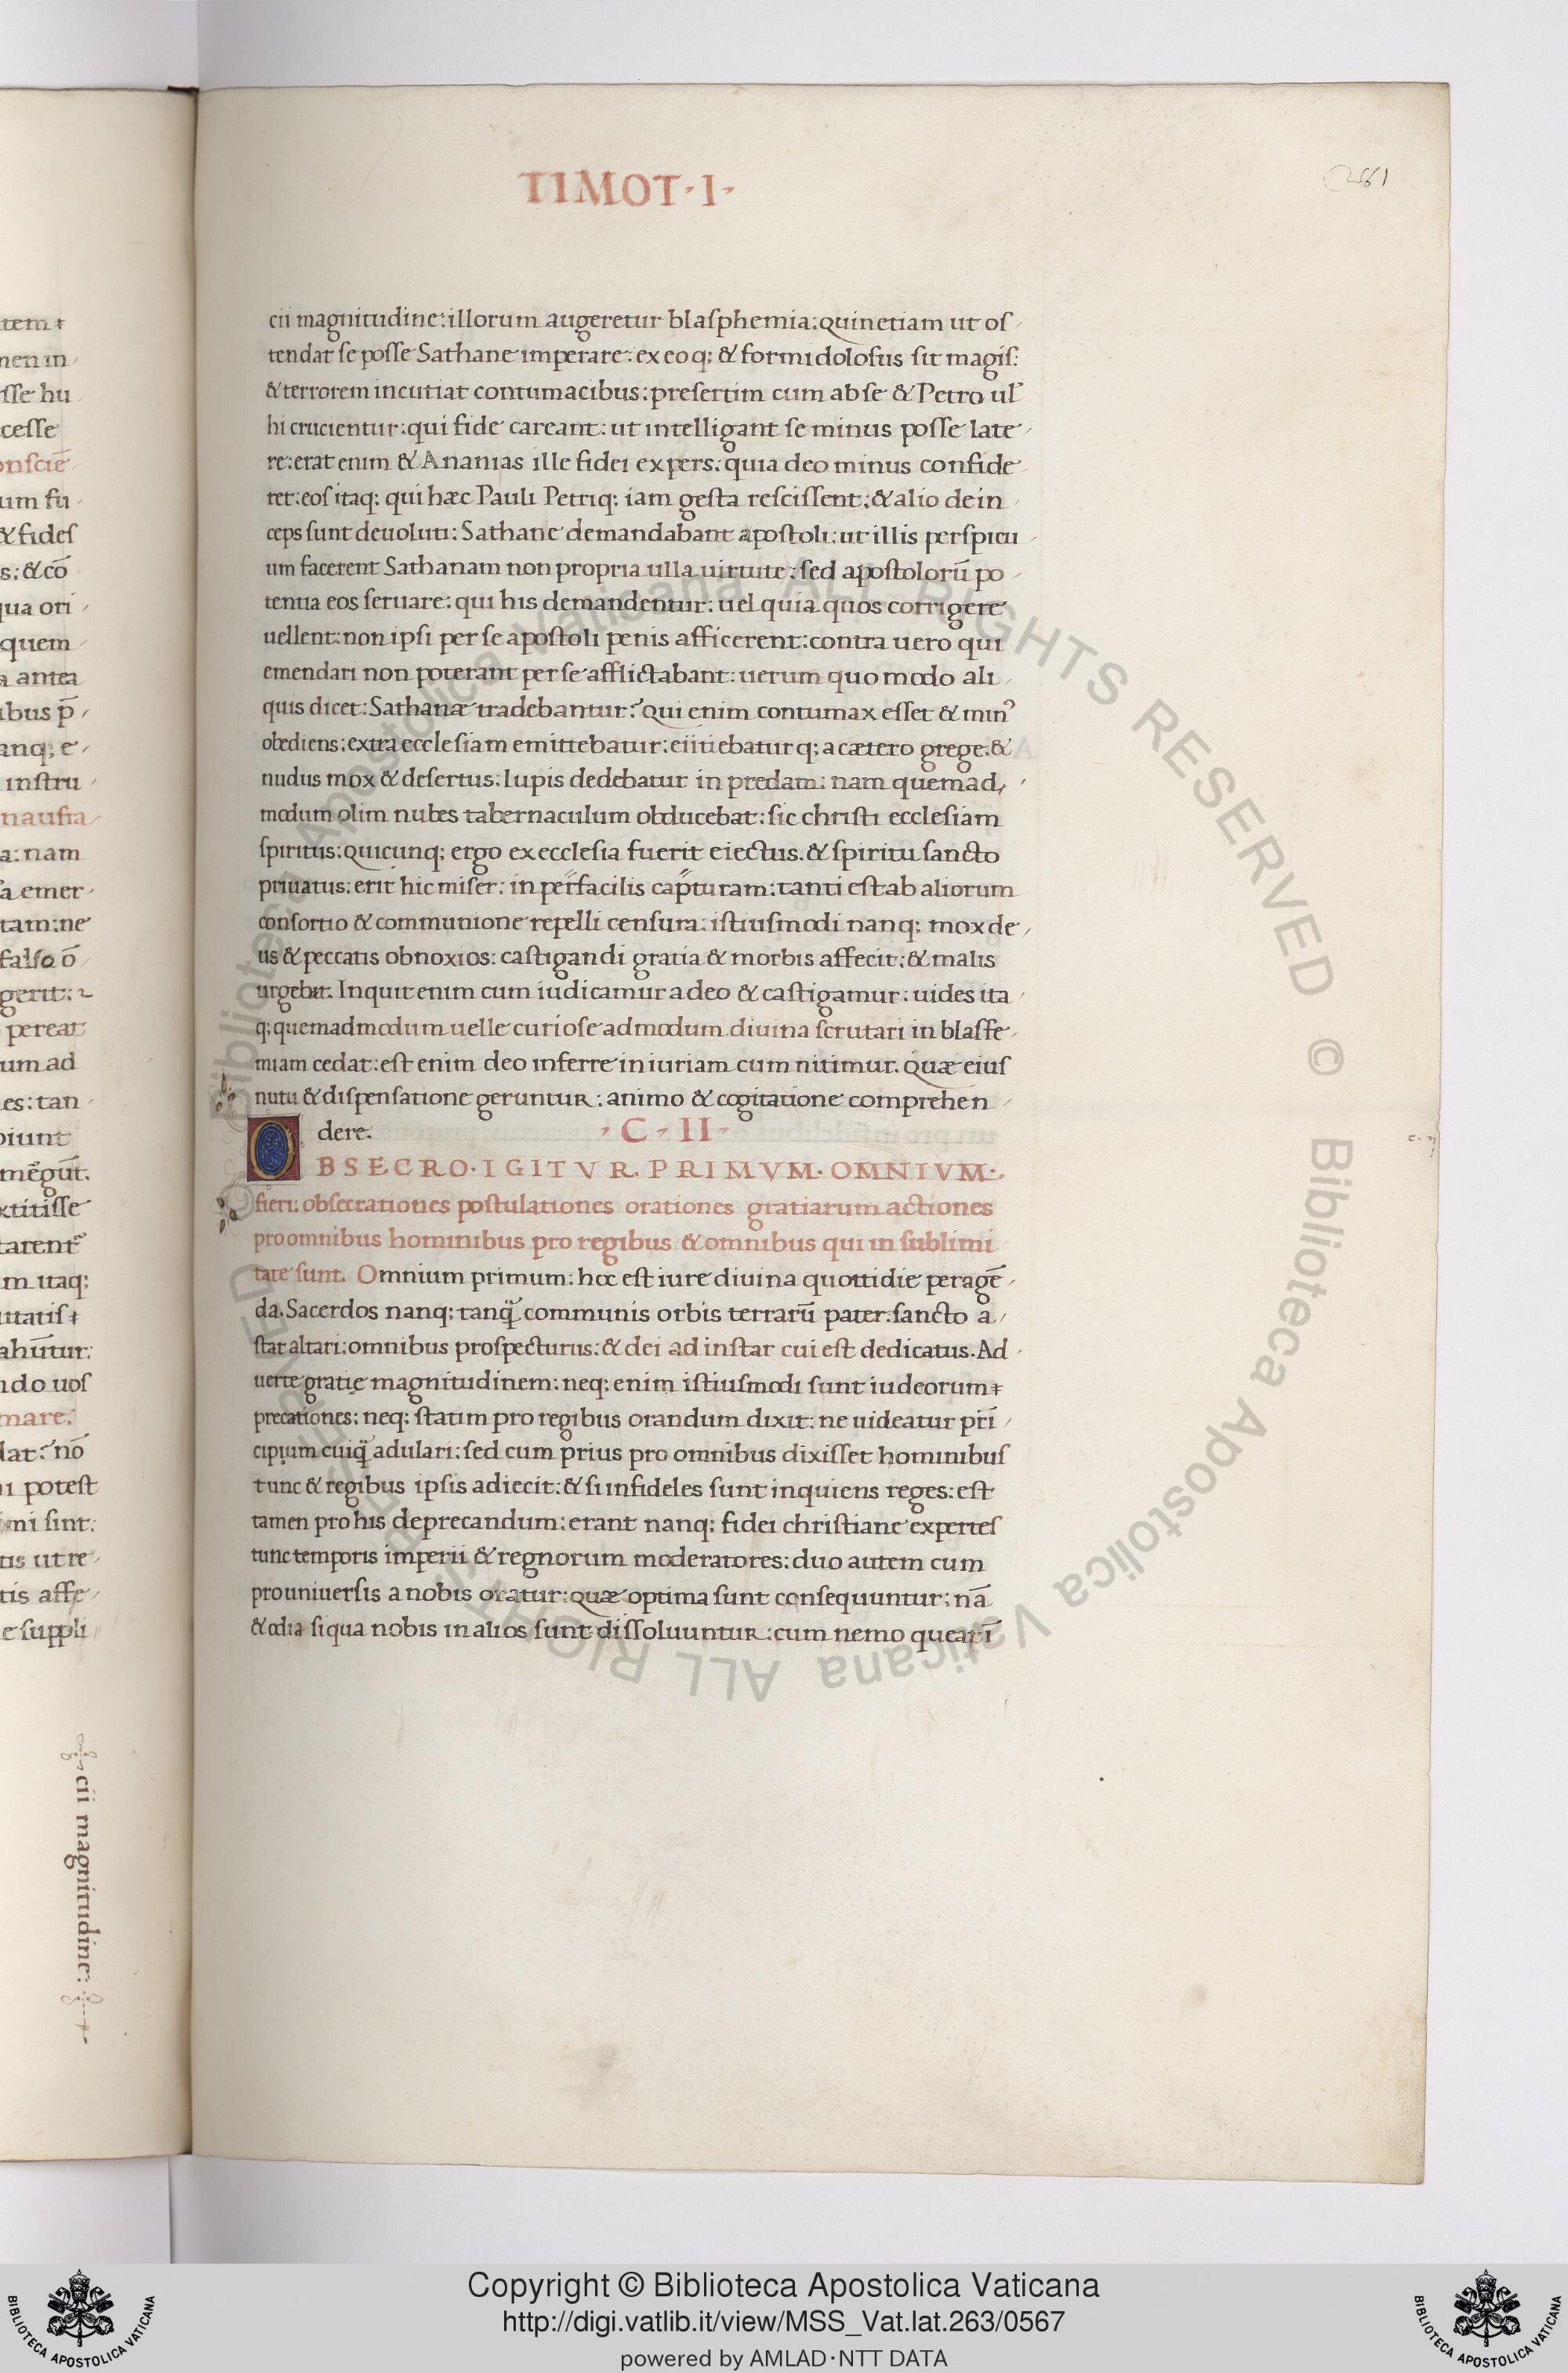 TIMOT · I ·
281
cii magnitudine: illorum augeretur blasphemia: quinetiam ut os
tendat se posse Sathane imperare: ex eoq; & formidolosus sit magis:
& terrorem incutiat contumacibus: presertim cum ab se & Petro ul̃
hi crucientur: qui fide careant: ut intelligant se minus posse late
re: erat enim & Ananias ille fidei expers: quia deo minus confide
ret: eos itaq; qui hæc Pauli Petriq; iam gesta rescissent: & alio dein
ceps sunt deuoluti: Sathane demandabant apostoli: ut illis perspicu
um facerent Sathanam non propria ulla uirtute: sed apostolorū po
tentia eos seruare: qui his demandentur: uel quia quos corrigere
uellent: non ipsi per se apostoli penis afficerent: contra uero qui
emendari non poterant per se afflictabant: uerum quo modo ali
quis dicet: Sathanæ tradebantur? Qui enim contumax esset & min᾿
obediens: extra ecclesiam emittebatur: eiitiebatur q; a cætero grege. &
nudus mox & desertus: lupis dedebatur in predam: nam quemad
modum olim nubes tabernaculum obducebat: sic christi ecclesiam
spiritus: quicunq; ergo ex ecclesia fuerit eiectus. & spiritu sancto
priuatus: erit hic miser: in perfacilis capturam: tanti est ab aliorum
consortio & communione repelli censura: istiusmodi nanq; mox de
us & peccatis obnoxios: castigandi gratia & morbis affecit: & malis
urgebit. Inquit enim cum iudicamur a deo & castigamur: uides ita
q; quemadmodum uelle curiose admodum diuina scrutari in blasfe
miam cedat: est enim deo inferre iniuriam cum nitimur. Quæ eius
nutu & dispensatione geruntur: animo & cogitatione comprehen
dere. · C · II ·
OBSECRO · IGITVR · PRIMVM · OMNIVM ·
fieri: obsecrationes postulationes orationes gratiarum actiones
pro omnibus hominibus pro regibus & omnibus qui in sublimi
tate sunt. Omnium primum: hoc est iure diuina quottidie peragē
da. Sacerdos nanq; tanq̃ communis orbis terrarū pater: sancto a
stat altari: omnibus prospecturus: & dei ad instar cui est dedicatus. Ad
uerte gratię magnitudinem: neq; enim istiusmodi sunt iudeorum
precationes: neq; statim pro regibus orandum dixit: ne uideatur prī
cipium cuiq̃ adulari: sed cum prius pro omnibus dixisset hominibus
tunc & regibus ipsis adiecit: & si infideles sunt inquiens reges: est
tamen pro his deprecandum: erant nanq; fidei christiane expertes
tunc temporis imperii & regnorum moderatores: duo autem cum
pro uniuersis a nobis oratur: quæ optima sunt consequuntur: nā
& odia siqua nobis in alios sunt dissoluuntur: cum nemo queat ī
cii magnitudine:
Copyright © Biblioteca Apostolica Vaticana
http://digi.vatlib.it/view/MSS_Vat.lat.263/0567
powered by AMLAD·NTT DATA